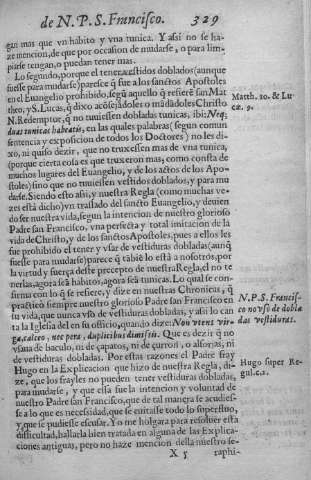 de N. P. S. Francisco. 329
gan mas que vn hábito y vna tunica. Y assi no se ha-
ze mencion, de que por ocasion de mudarse, o para lim-
piarse tengan, o puedan tener mas.
Lo segundo, porque el tener vestidos doblados (aunque
fuesse para mudarse) paresce q̃ fue a los sanctos Apostoles
en el Euangelio prohibido, segũ aquello q̃ refierẽ san Mat
theo, y S. Lucas, q̃ dixo acõsejãdoles o mãdãdoles Christo
N. Redemptor, q̃ no tuuiessen dobladas tunicas, ibi: Neq;
duas tunicas habeatis, en las quales palabras (segun comun
sentencia y exposicion de todos los Doctores) no les di-
xo, ni quiso dezir, que no truxessen mas de vna tunica,
(porque cierta cosa es que truxeron mas, como consta de
muchos lugares del Euangelio, y de los actos de los Apos-
toles) sino que no tuuiessen vestidos doblados, y para mu
darse. Siendo esto assi, y nuestra Regla (como muchas ve-
zes està dicho) vn traslado del sancto Euangelio, y deuien
do ser nuestra vida, segun la intencion de nuestro glorioso
Padre san Francisco, vna perfecta y total imitacion de la
vida de Christo, y de los sanctos Apostoles, pues a ellos les
fue prohibido el tener y vsar de vestiduras dobladas (aunq̃
fuesse para mudarse) parece q̃ tãbiẽ lo està a nosotros, por
la virtud y fuerça deste precepto de nuestra Regla, el no te
nerlas, agora seã habitos, agora seã tunicas. Lo qual se con-
firma con lo q̃ se refiere, y dize en nuestras Chronicas, q̃
practicò siempre nuestro glorioso Padre san Francisco en
su vida, que nunca vsò de vestiduras dobladas, y assi lo can
ta la Iglesia del en su officio, quando dize: Non vtens vir-
ga, calceo, nec pera, duplicibus dimissis. Que es dezir q̃ no
vsaua de baculo, ni de çapatos, ni de çurron, o alforjas, ni
de vestiduras dobladas. Por estas razones el Padre fray
Hugo en la Explicacion que hizo de nuestra Regla, di-
ze, que los frayles no pueden tener vestiduras dobladas,
para mudarse, y que essa fue la intencion y voluntad de
nuestro Padre san Francisco, que de tal manera se acudies-
se a lo que es necessidad, que se euitasse todo lo superfluo,
y que se pudiesse escusar. Yo me holgara para resoluer esta
difficultad, hallarla bien tratada en alguna de las Explica-
ciones antiguas, pero no haze mencion della nuestro se-
X 5 raphi-
Matth. 10. & Lu
cæ. 9.
N. P. S. Francis-
co no vsò de dobla
das vestiduras.
Hugo super Re-
gul. c. 2.